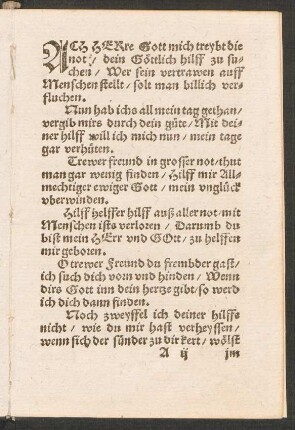 ACH HERre Gott mich treybt die
not / dein Göttlich hilff zu su-
chen / Wer sein vertrawen auff
Menschen stellt / solt man billich ver-
fluchen.
Nun hab ichs all mein tag gethan /
vergib mirs durch dein güte / Mit dei-
ner hilff will ich mich nun / mein tage
gar verhüten.
Trewer freund in grosser not / thut
man gar wenig finden / Hilff mir All-
mechtiger ewiger Gott / mein vnglück
vberwinden.
Hilff helffer hilff auß aller not / mit
Menschen ists verloren / Darumb du
bist mein HErr vnd GOtt / zu helffen
mir geboren.
O trewer Freund du frembder gast /
ich such dich vorn vnd hinden / Wenn
dirs Gott inn dein hertze gibt / so werd
ich dich dann finden.
Noch zweyffel ich deiner hilffe
nicht / wie du mir hast verheyssen /
wenn sich der sünder zu dir kert / wölst
A ij jm